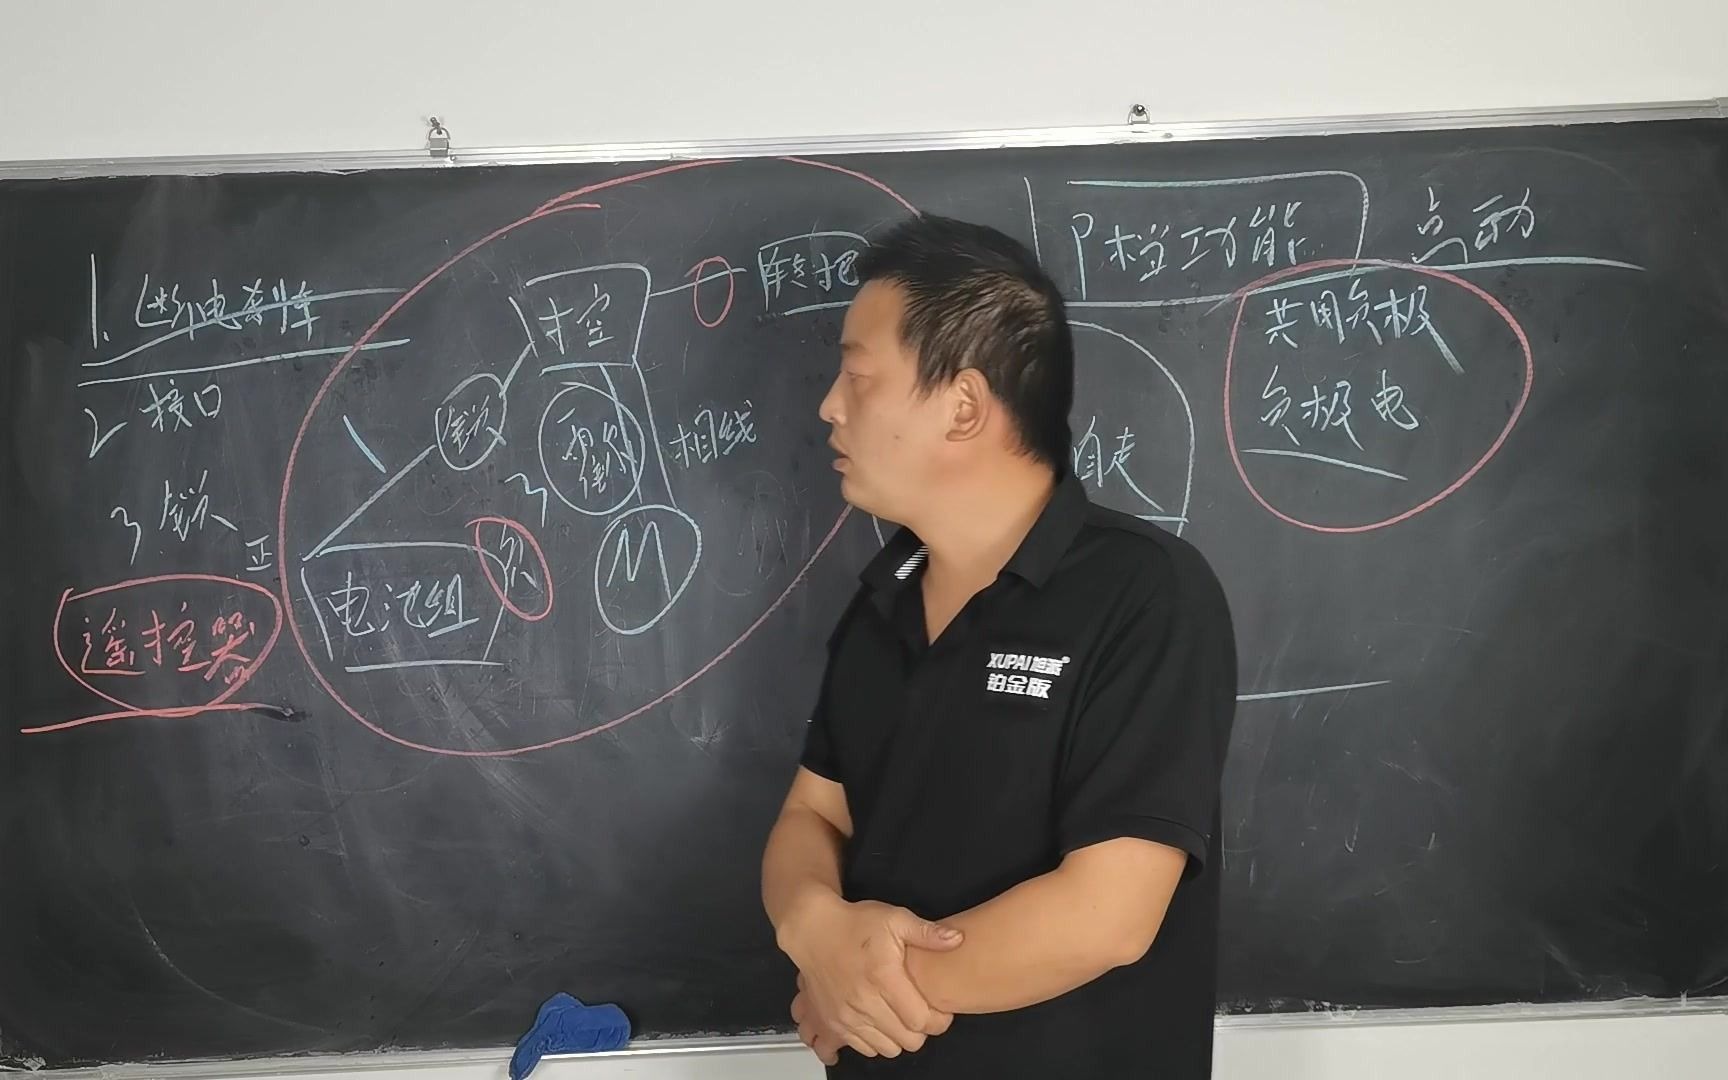 1. 断电刹车
2 接口
3 锁
遥控器
正
电池组
负
锁
控
3
相线
M
转把
P档功能
点动
自走
共用负极
负极电
XUPAI旭派®
铂金版